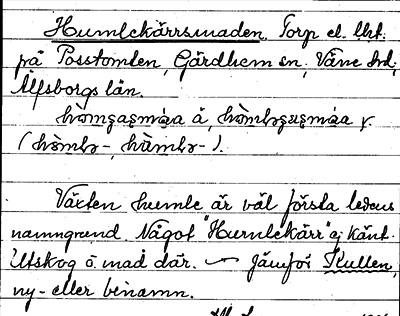 Humlekärrsmaden. Torp el. lht.
på Posstomten, Gärdhem sn, Väne hd,
Älfsborgs län.
Växten humle är väl första ledens
namngrund. Något "Humlekärr" ej känt.
Utskog o. mad där. Jämför Kullen,
ny- eller binamn.